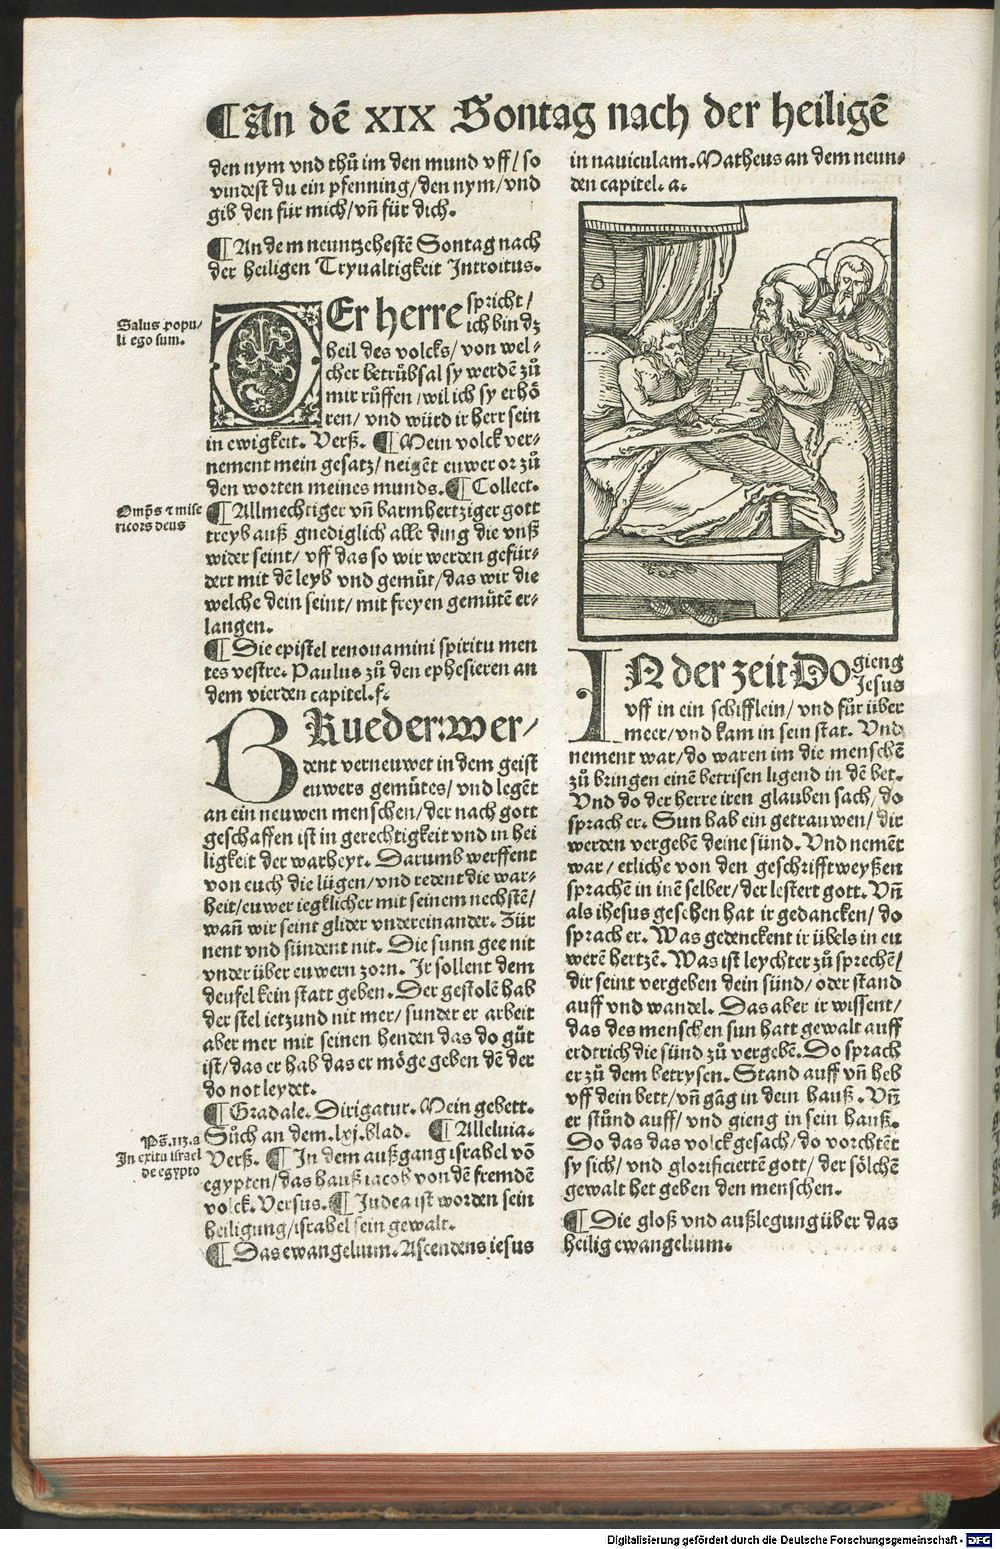 ¶An dē XIX Sontag nach der heiligē
den nym vnd thů im den mund vff/ so
vindest du ein pfenning/ den nym/ vnd
gib den für mich/ vn̄ für dich.
¶An dem neuntzehestē Sontag nach
der heiligen Tryualtigkeit Introitus.
Salus popu/
li ego sum.
DEr herre spricht/
ich bin dz
heil des volcks/ von wel-
cher betrübsal sy werdē zů
mir růffen/ wil ich sy erhö
ren/ vnd würd ir herr sein
in ewigkeit. Verß. ¶Mein volck ver-
nement mein gesatz/ neigēt euwer or zů
den worten meines munds. ¶Collect.
Omp̄s ⁊ mise
ricors deus
¶Allmechtiger vn̄ barmhertziger gott
treyb auß gnediglich alle ding die vnß
wider seint/ vff das so wir werden gefür-
dert mit dē leyb vnd gemüt/ das wir die
welche dein seint/ mit freyen gemütē er-
langen.
¶Die epistel renouamini spiritu men
tes vestre. Paulus zů den ephesieren an
dem vierden capitel. f.
BRueder: wer/
dent verneuwet in dem geist
euwers gemütes/ vnd legēt
an ein neuwen menschen/ der nach gott
geschaffen ist in gerechtigkeit vnd in hei
ligkeit der warheyt. Darumb werffent
von euch die lügen/ vnd redent die war-
heit/ euwer iegklicher mit seinem nechstē/
wan̄ wir seint glider vndereinander. Zür
nent vnd sündent nit. Die sunn gee nit
vnder über euwern zorn. Ir sollent dem
deufel kein statt geben. Der gestolē hab
der stel ietzund nit mer/ sunder er arbeit
aber mer mit seinen henden das do gůt
ist/ das er hab das er möge geben dē der
do not leydet.
¶Gradale. Dirigatur. Mein gebett.
Sůch an dem. lxj. blad. ¶Alleluia.
Ps̄. 113. a
In exitu israel
de egypto
Verß. ¶In dem außgang israhel vō
egypten/ das hauß iacob von dē fremdē
volck. Versus. ¶Judea ist worden sein
heiligung/ israhel sein gewalt.
¶Das ewangelium. Ascendens iesus
in nauiculam. Matheus an dem neun-
den capitel. a.
IN der zeit Do gieng
Jesus
vff in ein schifflein/ vnd für über
meer/ vnd kam in sein stat. Vnd
nement war/ do waren im die menschē
zů bringen einē betrisen ligend in dē bet.
Vnd do der herre iren glauben sach/ do
sprach er. Sun hab ein getrauwen/ dir
werden vergebē deine sünd. Vnd nemēt
war/ etliche von den geschrifftweyßen
sprachē in inē selber/ der lestert gott. Vn̄
als ihesus gesehen hat ir gedancken/ do
sprach er. Was gedenckent ir übels in eu
werē hertzē. Was ist leychter zů sprechē/
dir seint vergeben dein sünd/ oder stand
auff vnd wandel. Das aber ir wissent/
das des menschen sun hatt gewalt auff
erdtrich die sünd zů vergebē. Do sprach
er zů dem betrysen. Stand auff vn̄ heb
vff dein bett/ vn̄ gāg in dein hauß. Vn̄
er stůnd auff/ vnd gieng in sein hauß.
Do das das volck gesach/ do vorchtēt
sy sich/ vnd glorificiertē gott/ der sölchē
gewalt het geben den menschen.
¶Die gloß vnd außlegung über das
heilig ewangelium.
Digitalisierung gefördert durch die Deutsche Forschungsgemeinschaft - DFG